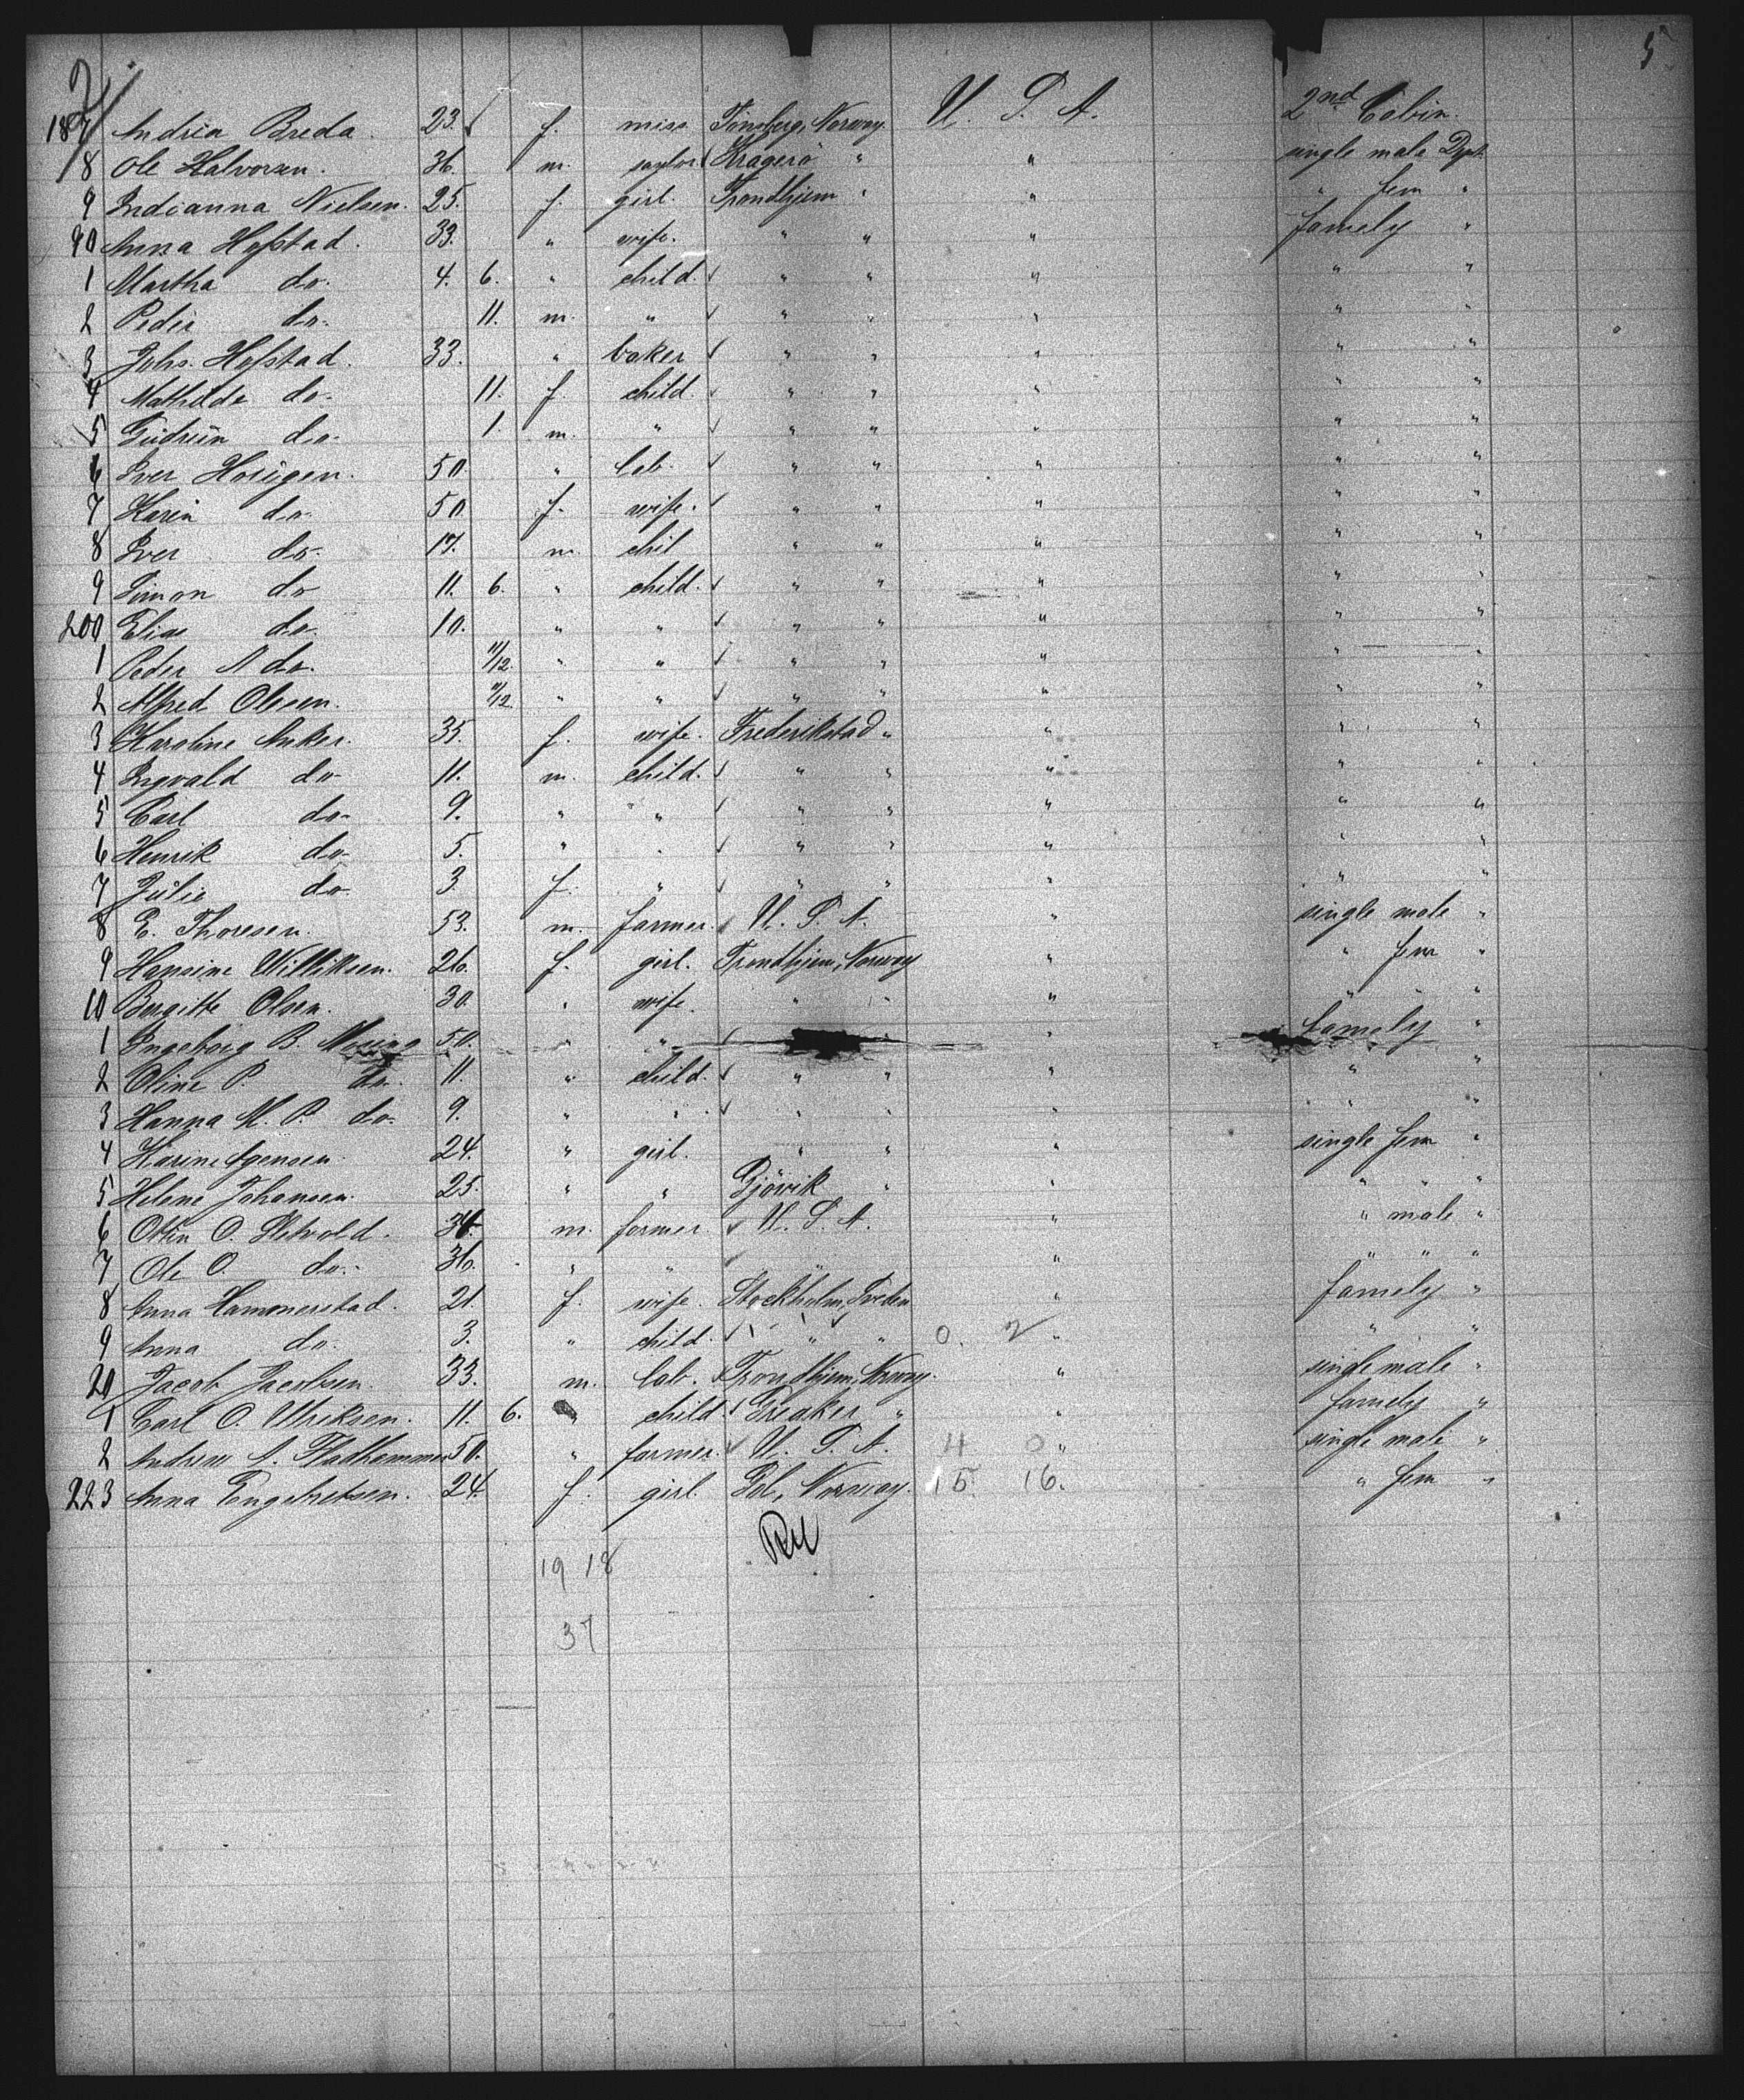 5
187 Andrea Breda. 23. f. miss Tönsberg, Norway. U. S. A. 2nd Cabin.
8 Ole Halvorsen. 36. m. saylor Kragerö " " single male Dpt.
9 Indianna Nielsen. 25. f. girl. Trondhjem " " " fem "
90 Anna Hofstad. 33. " wife. " " " famely "
1 Martha do. 4. 6. " child. " " " " "
2 Peder do. 11. m. " " " " " "
3 Johs. Hofstad. 33. " baker " " " " "
4 Mathilde do. 11. f. child. " " " " "
5 Gudrün do. 1. m. " " " " " "
6 Iver Hoiügen. 50. " lab. " " " " "
7 Karin do. 50. f. wife. " " " " "
8 Iver do. 17. m. chil " " " " "
9 Simon do 11. 6. " child. " " " " "
200 Elias do. 10. " " " " " " "
1 Peder A do. 11/12. " " " " " " "
2 Alfred Olesen. 11/12 " " " " " " "
3 Karoline Anker. 35. f. wife. Frederikstad " " " "
4 Ingvald do 11. m. child. " " " " "
5 Carl do 9. " " " " " " "
6 Henrik do 5. " " " " " " "
7 Jülie do. 3. f. " " " " " "
8 E. Thoresen. 53. m. farmer. U. S. A. " single male "
9 Hansine Williksen. 26. f. girl. Trondhjem, Norway " " fem "
10 Bergitte Olsen. 30. " wife. " " " " " "
1 Ingeborg B. 50. " " " " famely "
2 Oline P. do. 11. " child. " " " " "
3 Hanna M. P. do. 9. " " " " " " "
4 Karine Agensen. 24. " girl. " " " single fem "
5 Helene Johansen. 25. " " Gjövik " " " " "
6 Otten O. 34. m. farmer. U. S. A. " " male "
7 Ole O. do. 36. " " " " " " "
8 Anna Hammerstad. 21. f. wife. Stockholm, Sveden " famely "
9 Anna do. 3. " child. " " 0. 2 " " "
20 Jacob Jacobsen. 33. m. lab. Trondhjem, Norway. " single male "
1 Carl O. Ulriksen. 11. 6. " child Greaker " " famely "
2 Andrew A. Fladhammer 50. " farmer. U. S. A. 4 0 " single male "
223 Anna Engebretsen. 24. f. girl Gol, Norway. 15. 16. " fem "
19 18
37